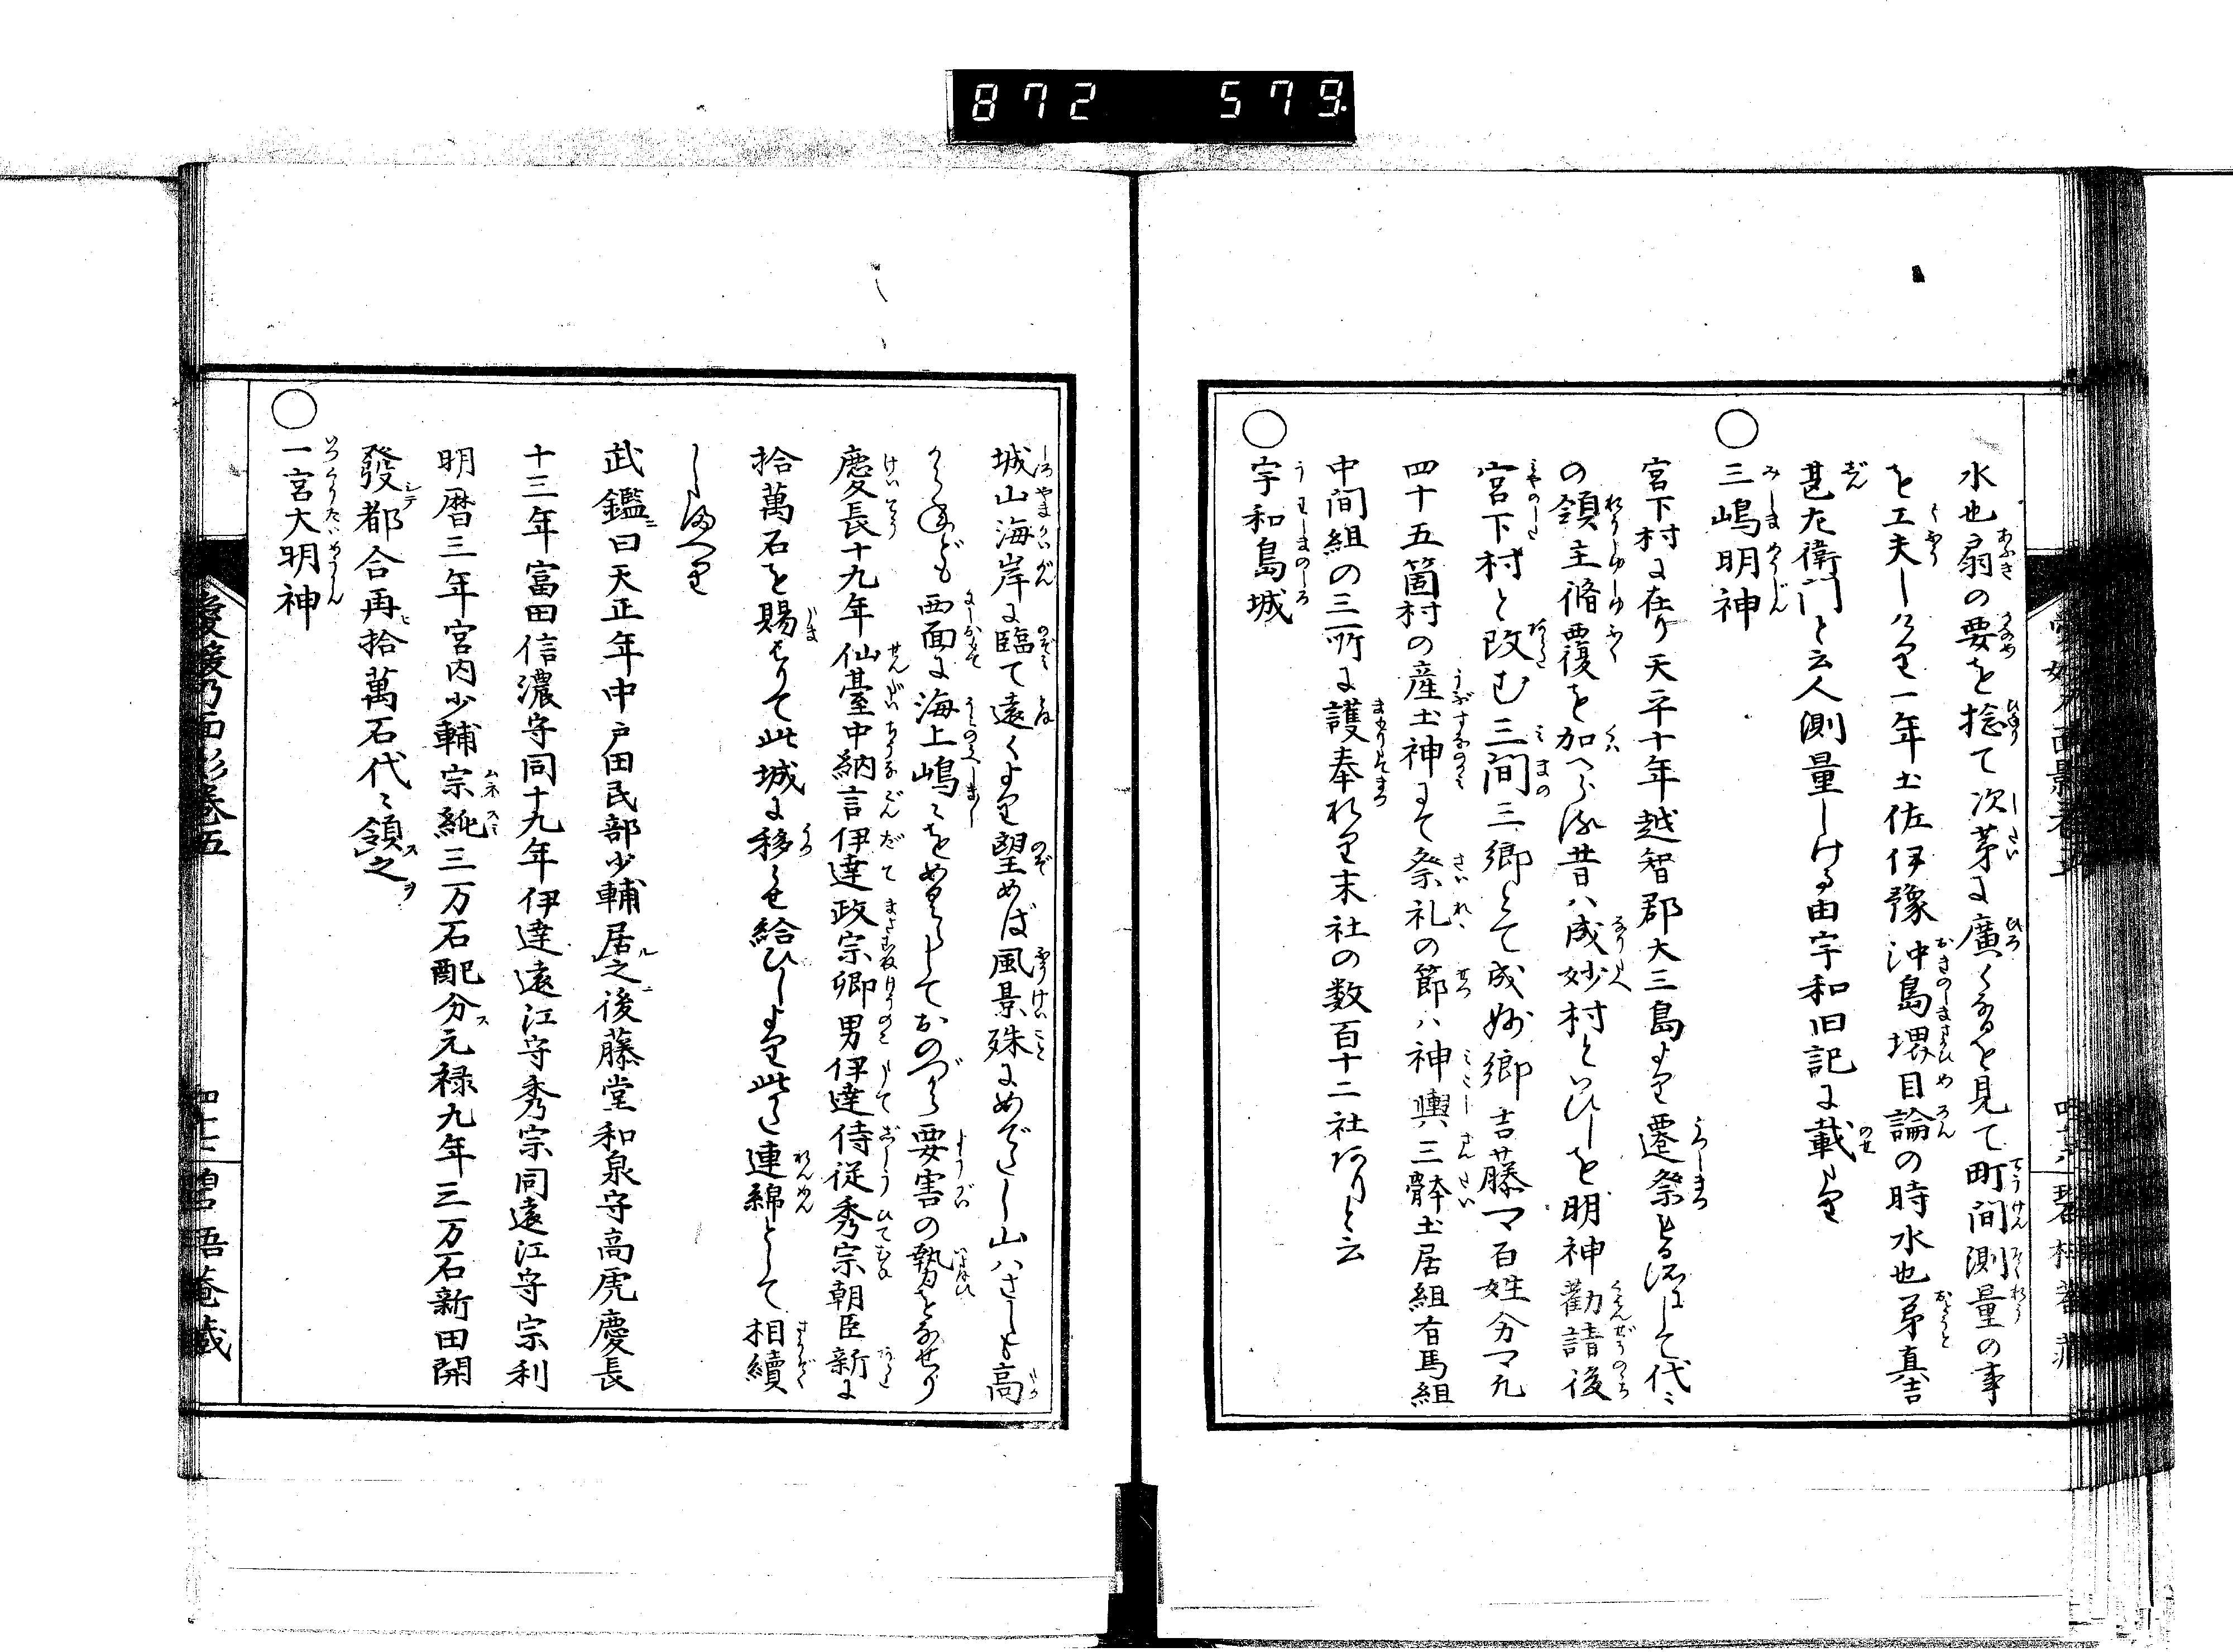 872 579
水也扇の要を捻て次苐に廣くなるを見て町間測量の事
を工夫しけり一年土佐伊豫沖島堺目論の時水也弟真吉
甚左衛門と云人測量しける由宇和旧記に載たり
○三嶋明神
宮下村に在り天平十年越智郡大三島より遷祭せる所にして代々
の領主脩覆を加へらる昔ハ成妙村といひしを明神勸請後
宮下村と改む三間三郷とて成妙郷吉藤マ百姓分マ九
四十五箇村の産土神にて祭礼の節ハ神輿三軆土居組有馬組
中間組の三所に護奉れり末社の数百十二社ありと云
○宇和島城
城山海岸に臨て遠くより望めば風景殊にめでたし山ハさしも高
からねども西面に海上嶋々をめぐらしておのづから要害の勢をなせり
慶長十九年仙臺中納言伊達政宗卿男伊達侍従秀宗朝臣新に
拾萬石を賜はりて此城に移らせ給ひしより此かた連綿として相續
したまへり
武鑑ニ曰天正年中戸田民部少輔居之後藤堂和泉守高虎慶長
十三年富田信濃守同十九年伊達遠江守秀宗同遠江守宗利
明暦三年宮内少輔宗純三万石配分元禄九年三万石新田開
發都合再拾萬石代々領之
○一宮大明神
愛媛乃面影巻五 四十七 碧梧菴蔵